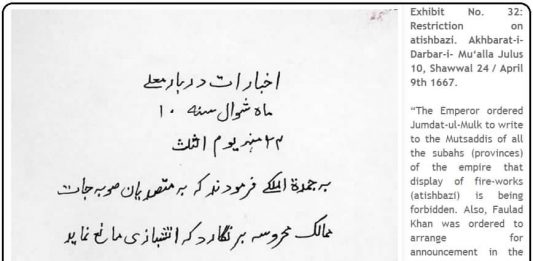 اخبارات دربار معلے
ماه شوال سنه ۱۰
۲۴ یوم الثلث
به جمدة الملکے فرمودند که به متصدیان صوبه جات
ممالک محروسه برنگارد که اتشبازی مانع نماید
Exhibit No. 32:
Restriction on
atishbazi. Akhbarat-i-
Darbar-i- Mu‘alla Julus
10, Shawwal 24 / April
9th 1667.
“The Emperor ordered
Jumdat-ul-Mulk to write
to the Mutsaddis of all
the subahs (provinces)
of the empire that
display of fire-works
(atishbazi) is being
forbidden. Also, Faulad
Khan was ordered to
arrange for
announcement in the